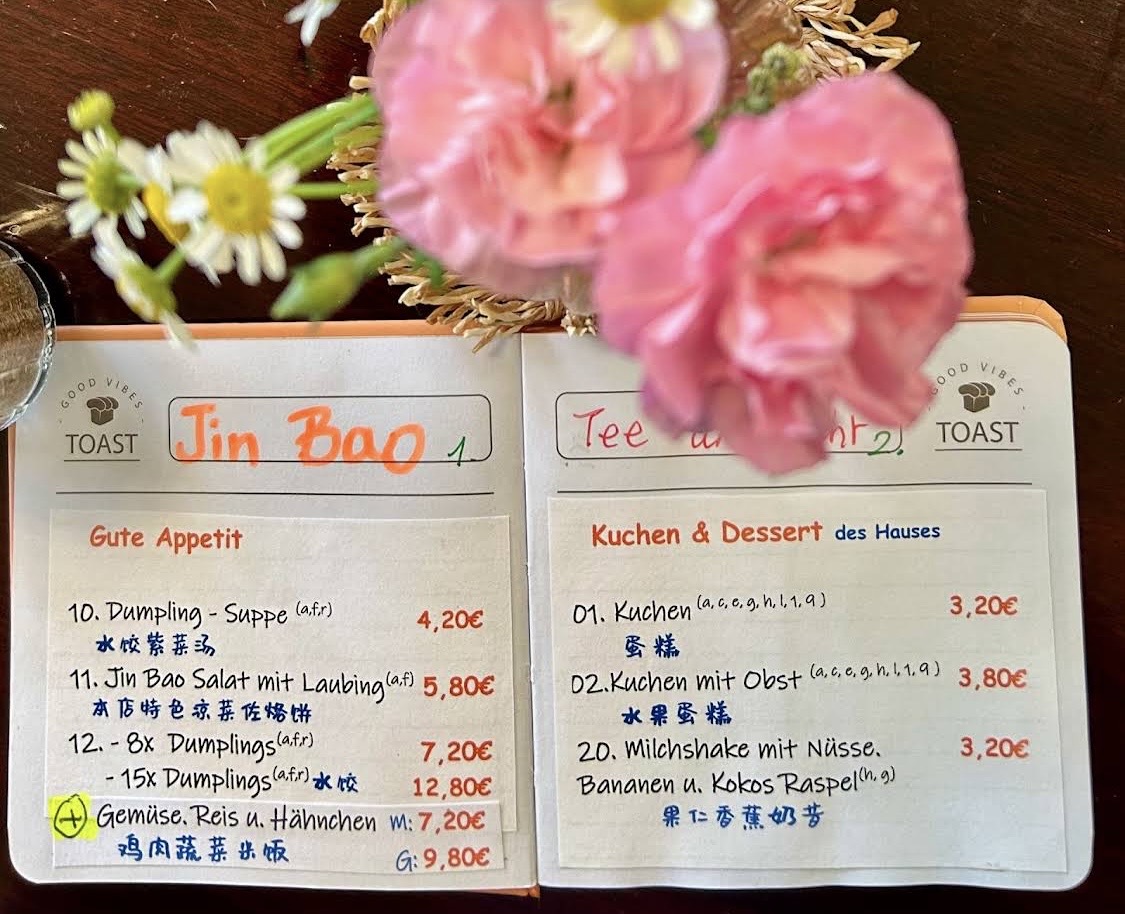 GOOD VIBES
TOAST
Jin Bao 1.
Gute Appetit
10. Dumpling - Suppe (a,f,r) 4,20€
水饺紫菜汤
11. Jin Bao Salat mit Laubing (a,f) 5,80€
本店特色凉菜佐烙饼
12. - 8x Dumplings (a,f,r) 7,20€
- 15x Dumplings (a,f,r) 水饺 12,80€
+ Gemüse. Reis u. Hähnchen M: 7,20€
鸡肉蔬菜米饭 G: 9,80€
Tee 2.
GOOD VIBES
TOAST
Kuchen & Dessert des Hauses
01. Kuchen (a, c, e, g, h, l, 1, 9) 3,20€
蛋糕
02.Kuchen mit Obst (a, c, e, g, h, l, 1, 9) 3,80€
水果蛋糕
20. Milchshake mit Nüsse. 3,20€
Bananen u. Kokos Raspel (h, g)
果仁香蕉奶昔